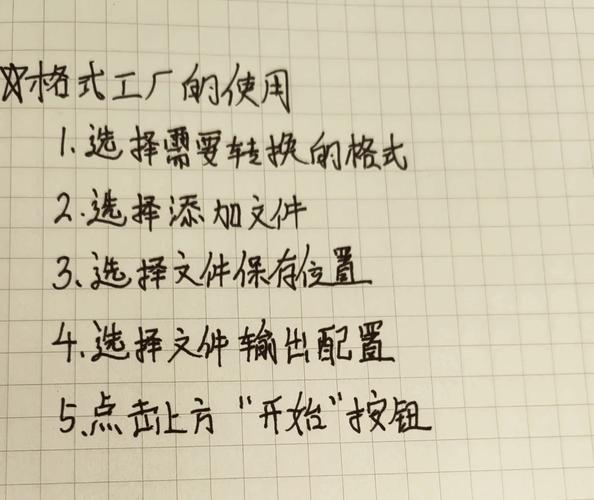 ☆格式工厂的使用
1.选择需要转换的格式
2.选择添加文件
3.选择文件保存位置
4.选择文件输出配置
5.点击上方“开始”按钮